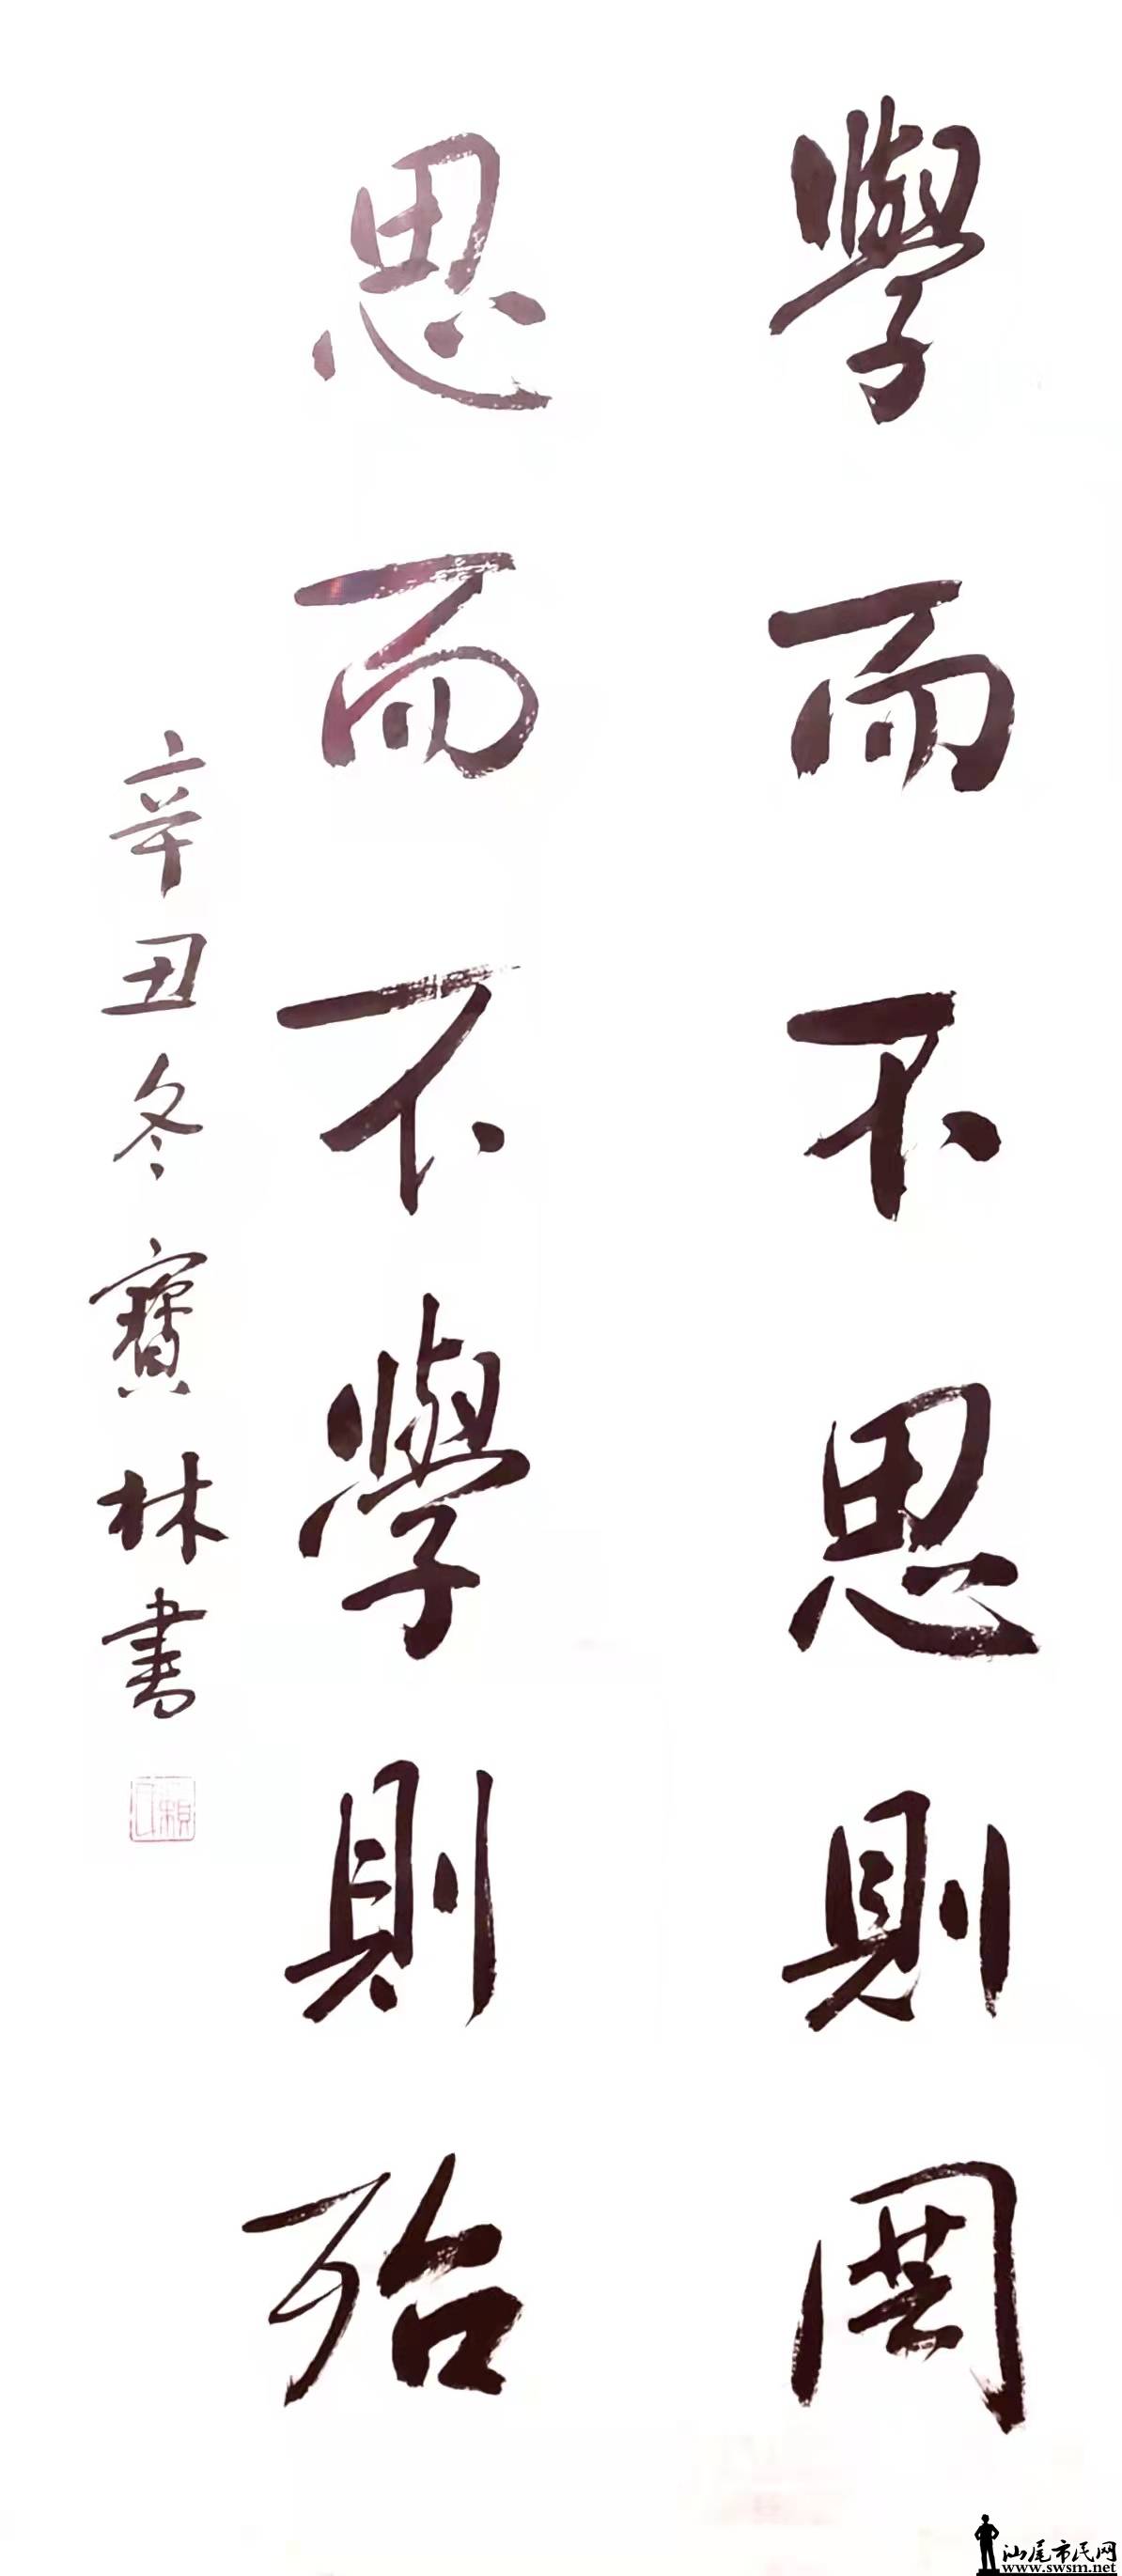 學而不思則罔
思而不學則殆
辛丑冬寶林書
汕尾市民网
www.swsm.net